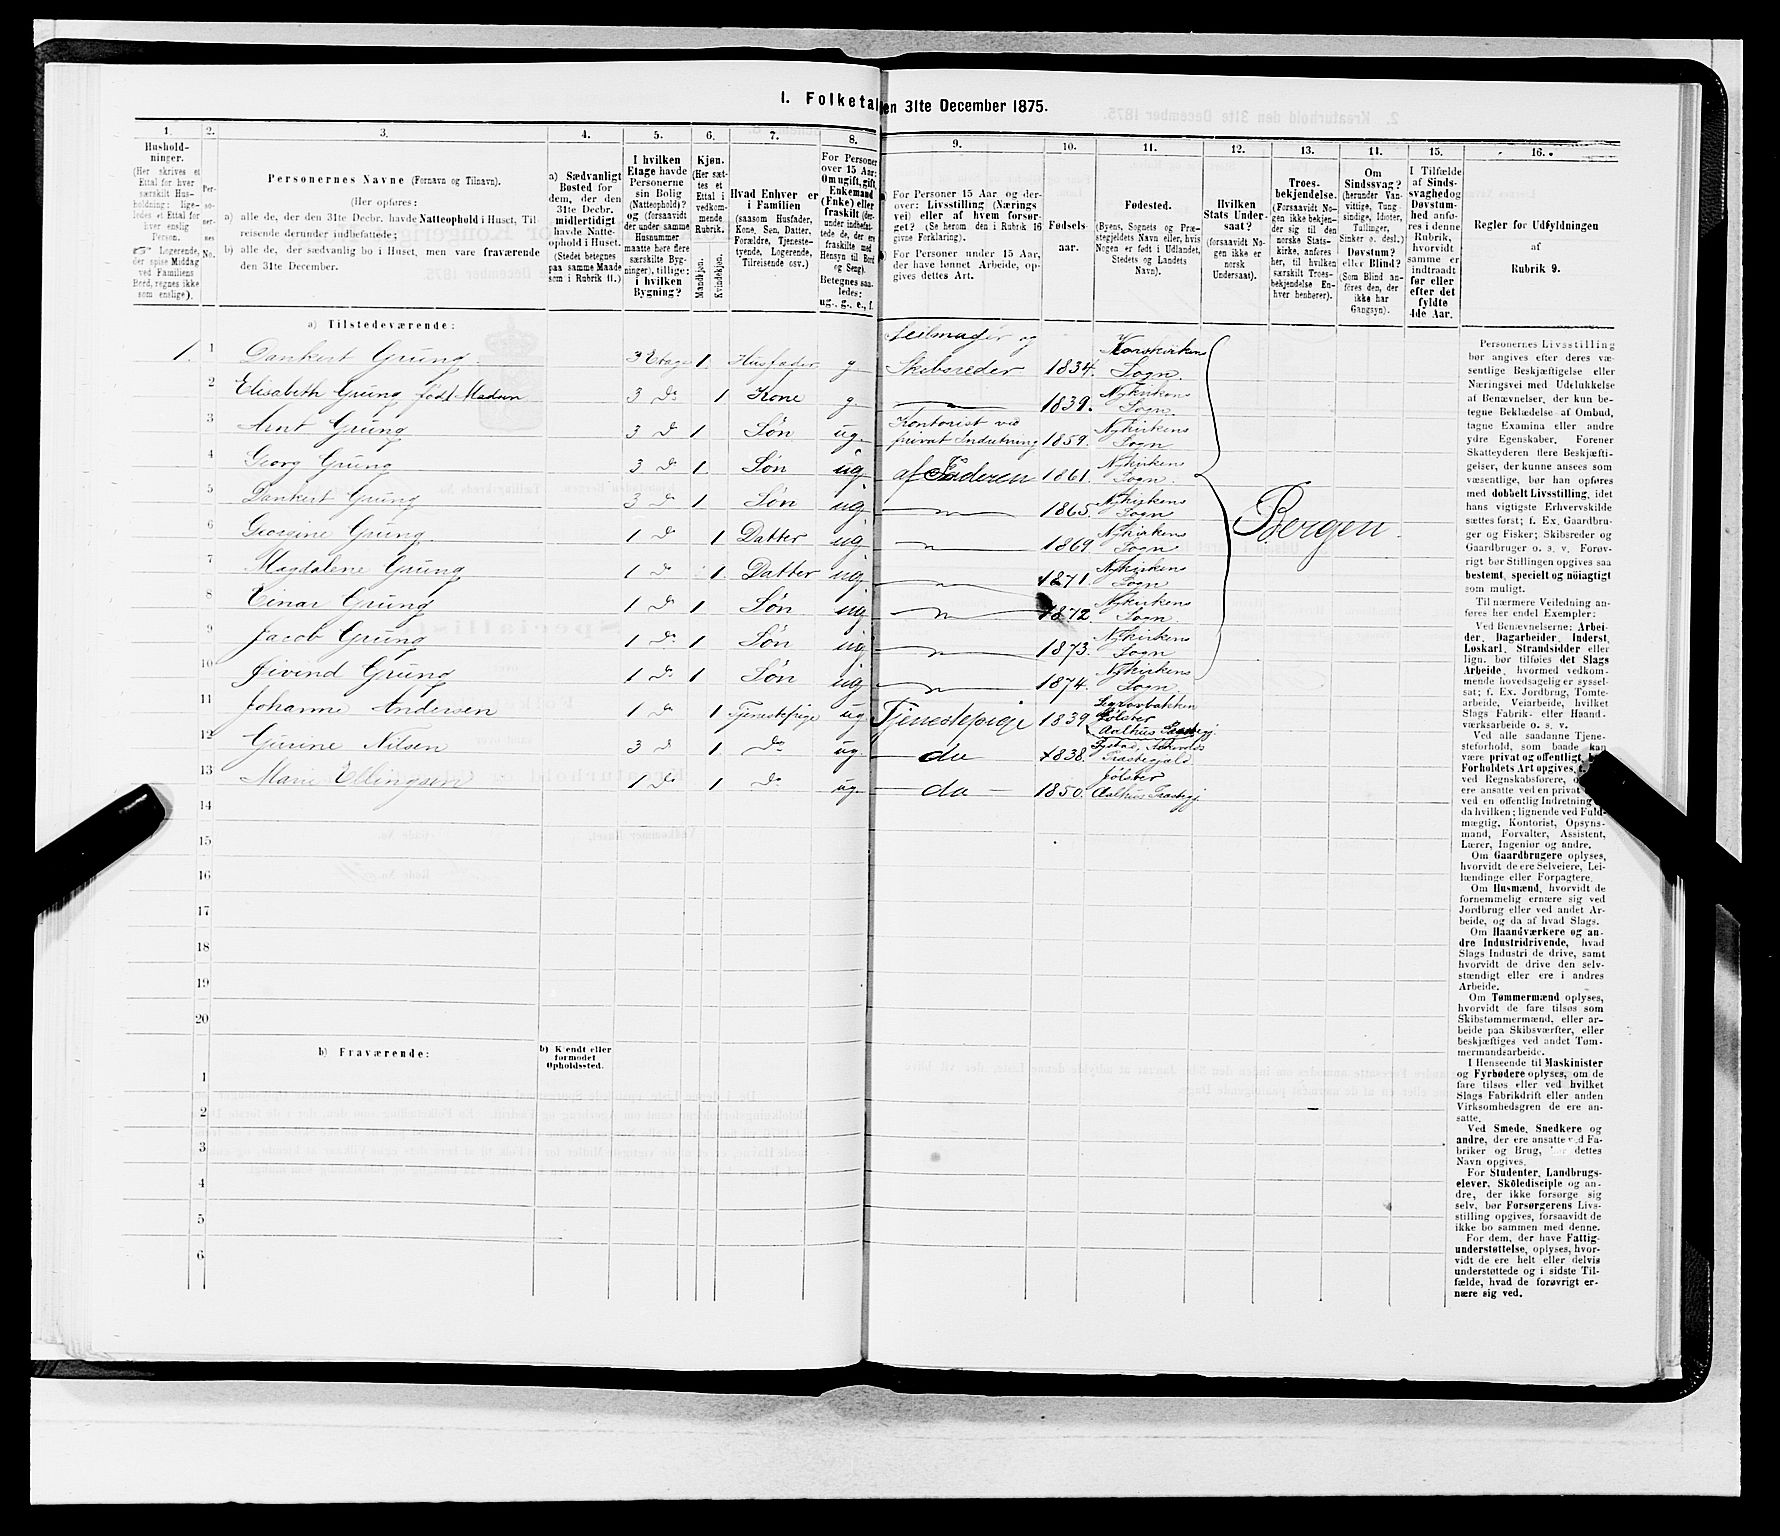 I. Folketal den 31te December 1875.
1. 2. 3. 4. 5. 6. 7. 8. 9. 10. 11. 12. 13. 14. 15. 16.
Hushold-
ninger.
(Her skrives et
Ettal for hver
særskilt Hus-
holdning; lige-
ledes et Ettal for
hver enslig
Person.
Logerende,
der spise Middag
ved Familiens
Bord, regnes ikke
som enslige).
Per-
so-
ner-
nes
No.
Personernes Navne (Fornavn og Tilnavn).
(Her opføres:
a) alle de, der den 31te Decbr. havde Natteophold i Huset, Til-
reisende derunder indbefattede;
b) alle de, der sædvanlig bo i Huset, men vare fraværende
den 31te December.
a) Sædvanligt
Bosted for
dem, der den
31te Decbr.
midlertidigt
havde Natte-
ophold i Huset.
(Stedet betegnes
paa samme Maade
som i Rubrik 11.)
I hvilken
Etage havde
Personerne
sin Bolig
(Natteophold)?
og (forsaavidt
der under samme
Husnummer
maatte høre flere
særskilte Byg-
ninger), tillige:
i hvilken
Bygning?
Kjøn.
(Her sæt-
tes et
Ettal i
vedkom-
mende
Rubrik.
Mandkjøn.
Kvindekjøn.
Hvad Enhver er
i Familien
(saasom Husfader,
Kone, Søn, Datter,
Forældre, Tjeneste-
tyende, Logerende,
Tilreisende osv.)
For Personer
over 15 Aar:
Om ugift, gift,
Enkemand
(Enke) eller
fraskilt (der-
under indbefat-
tede de, der ere
fraskilte med
Hensyn til Bord
og Seng).
Betegnes saa-
ledes:
ug., g., e., f.
For Personer 15 Aar og der-
over: Livsstilling (Nærings
vei) eller af hvem forsør-
get? (Se herom den i Rubrik 16
givne Forklaring).
For Personer under 15 Aar,
der have lønnet Arbeide, op-
gives dettes Art.
Fødsels-
aar.
Fødested.
(Byens, Sognets og Præ-
stegjeldets Navn eller, hvis
Nogen er født i Udlandet,
Stedets og Landets
Navn).
Hvilken
Stats Under-
saat?
(forsaavidt No-
gen ikke er
norsk
Undersaat).
Troes-
bekjendelse.
(Forsaavidt No-
gen ikke bekjen-
der sig til den
norske Stats-
kirke, anføres
her, til hvilken
særskilt Troes-
bekjendelse En-
hver henhører).
Om
Sindssvag?
(herunder Van-
vittige, Tung-
sindige, Idioter,
Tullinger,
Sinker o. desl.)
Døvstum?
eller Blind?
(Som Blind an-
føres den, der
ikke har
Gangsyn).
I Tilfælde
af Sinds-
svaghed og
Døvstum-
hed anfø-
res i denne
Rubrik,
hvorvidt
samme er
indtraadt
før eller
efter det
fyldte
4de Aar.
Regler for Udfyldningen
af
Rubrik 9.
a) Tilstedeværende:
1. 1 Dankert Grung 3 Etage 1. Husfader g Seilmager og Skibsreder 1834. Korskirkens Sogn.
2 Elisabeth Grung født Madsen 3 Do 1 Kone g — 1839. Nykirkens Sogn.
3 Arnt Grung 3 Do 1 Søn ug Kontorist ved privat Indretning 1859. Nykirkens Sogn
4 Georg Grung 3 Do 1 Søn ug af Faderen 1861. Nykirkens Sogn.
5 Dankert Grung 3 Do 1 Søn ug — " — 1865. Nykirkens Sogn
6 Georgine Grung 1 Do 1 Datter ug — " — 1869. Nykirkens Sogn
7 Magdalene Grung 1 Do 1. Datter ug — " — 1871. Nykirkens Sogn
8 Einar Grung 1 Do 1 Søn ug — " — 1872 Nykirkens Sogn.
9 Jacob Grung 1 Do 1 Søn ug — " — 1873. Nykirkens Sogn
10 Øivind Grung 1 Do 1 Søn ug — " — 1874. Nykirkens Sogn.
Bergen.
11 Johanne Andersen 1 Do 1 Tjenestepige ug Tjenestepige 1839 Jölster Aalhus
12 Gurine Nilsen 3 Do 1 Do ug do 1838.
13 Marie Ellingsen 1 Do 1 Do ug — do — 1850. Jölster Aalhus Præstegj.
14
15
16
17
18
19
20
b) Fraværende:
b) Kjendt eller
formodet
Opholdssted.
1
2
3
4
5
6
Personernes Livsstilling
bør angives efter deres væ-
sentlige Beskjæftigelse eller
Næringsvei med Udelukkelse
af Benævnelser, der kun be-
tegne Beklædelse af Ombud,
tagne Examina eller andre
ydre Egenskaber. Forener
Skatteyderen flere Beskjæfti-
gelser, der kunne ansees som
væsentlige, bør han opføres
med dobbelt Livsstilling, idet
hans vigtigste Erhvervskilde
sættes først; f. Ex. Gaardbru-
ger og Fisker; Skibsreder og
Gaardbruger o. s. v. Forøv-
rigt bør Stillingen opgives saa
bestemt, specielt og nöiagtigt
som muligt.
Til nærmere Veiledning an-
føres her endel Exempler:
Ved Benævnelserne: Arbei-
der, Dagarbeider, Inderst,
Løskarl, Strandsidder eller
lign. bør tilføies det Slags
Arbeide, hvormed vedkom-
mende hovedsagelig er syssel-
sat; f. Ex. Jordbrug, Tomte-
arbeide, Veiarbeide, hvilket
Slags Fabrik- eller Haand-
værksarbeide o. s. v.
Ved alle saadanne Tjene-
steforhold, som baade kan
være privat og offentligt,
Forholdets Art opgives,
ved Regnskabsførere,
ere ansatte ved en privat
ved en offentlig Indretning
da hvilken; lignende ved Fuld-
mægtig, Kontorist, Opsyns-
mand, Forvalter, Assistent,
Lærer, Ingeniør og andre.
Om Gaardbrugere oplyses,
hvorvidt de ere Selveiere, Lei-
lændinge eller Forpagtere.
Om Husmænd, hvorvidt de
fornemmelig ernære sig ved
Jordbrug eller ved andet Ar-
beide, og da af hvad Slags.
Om Haandværkere og an-
dre Industridrivende, hvad
Slags Industri de drive, samt
hvorvidt de drive den selv-
stændigt eller ere i andres
Arbeide.
Om Tømmermænd oplyses,
hvorvidt de fare tilsøs som
Skibstømmermænd, eller ar-
beide paa Skibsværfter, eller
beskjæftiges ved andet Tøm-
mermandsarbeide.
I Henseende til Maskinister
og Fyrbødere oplyses, om de
fare tilsøs eller ved hvilket
Slags Fabrikdrift eller anden
Virksomhedsgren de ere an-
satte.
Ved Smede, Snedkere og
andre, der ere ansatte ved Fa-
briker og Brug, bør dettes
Navn opgives.
For Studenter, Landbrugs-
elever, Skoledisciple og an-
dre, der ikke forsørge sig
selv, bør Forsørgerens Livs-
stilling opgives, forsaavidt de
ikke bo sammen med denne.
For dem, der have Fattig-
understøttelse, oplyses, hvor-
vidt de ere helt eller delvis
understøttede og i sidste Til-
fælde, hvad de forøvrigt er-
nære sig ved.